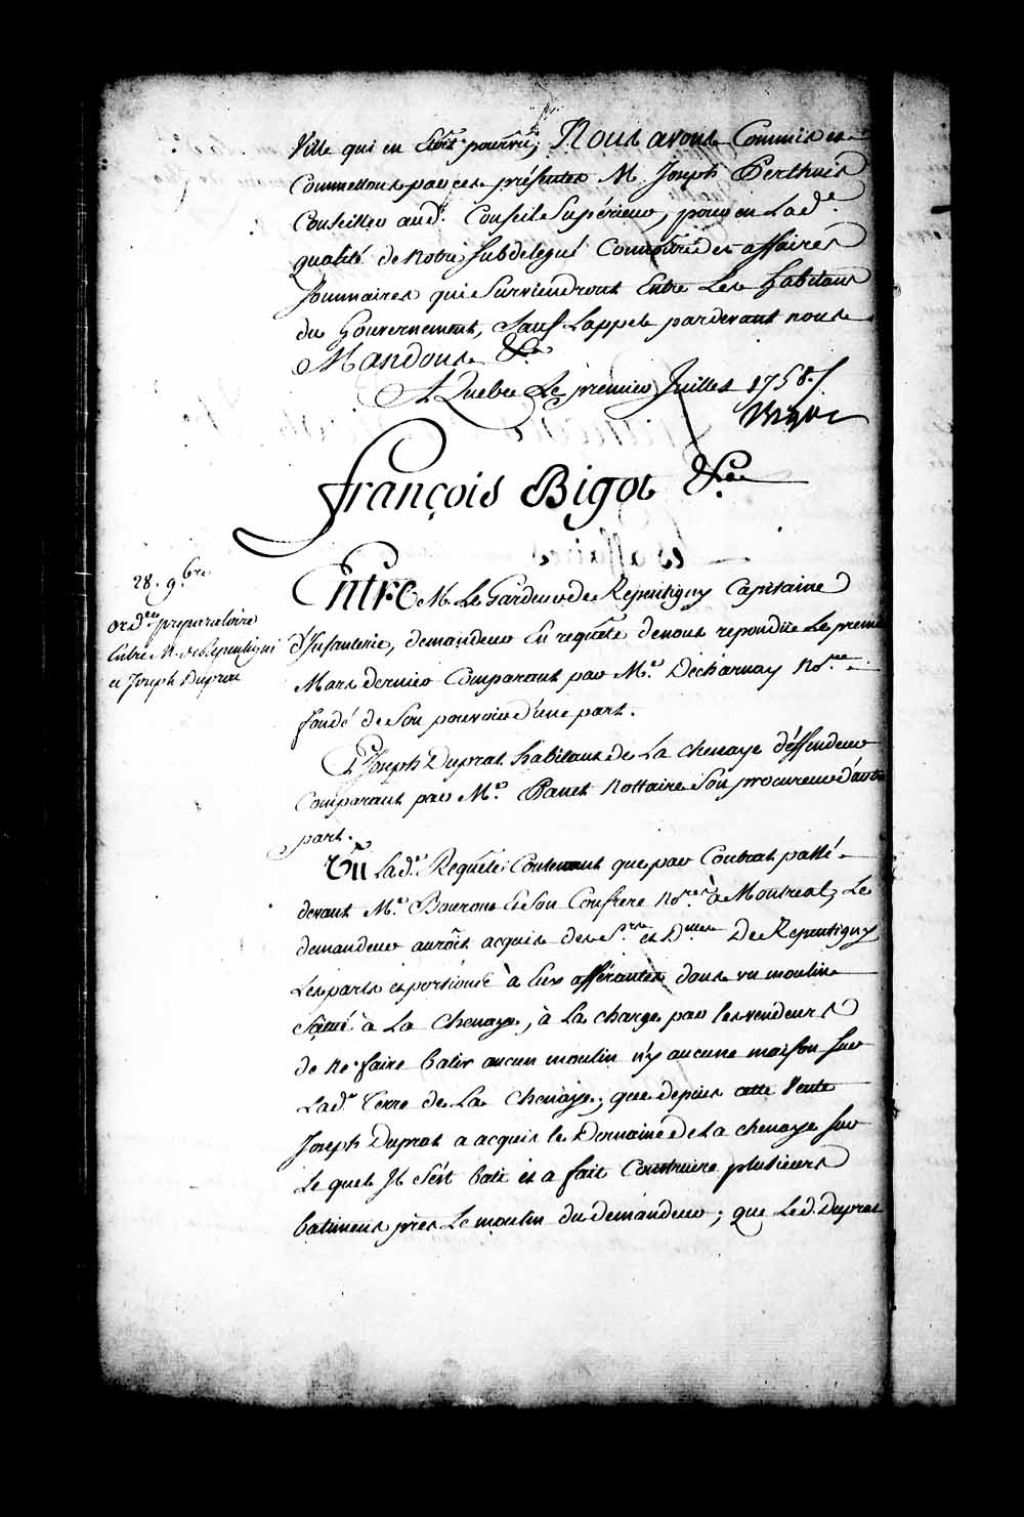 Ville qui en Soit pourvû; Nous avons Commis et
Commettons par ces présentes M. Joseph Perthuis
Conseiller aud. Conseil Supérieur, pour en Lad.e
qualité de notre subdelegué Connoître des affaires
Sommaires qui Surviendront Entre Les habitans
du Gouvernement, Sauf Lappel pardevant nous
Mandons &c.a
A Quebec Le premier Juillet 1758./
Bigot
françois Bigot &c.a
28. 9.bre
ord.ce preparatoire
Entre M. de Repentigni
et Joseph Duprat
Entre M. Le Gardeur de Repentigny Capitaine
d'Infanterie, demandeur En requête de nous repondüe Le premier
Mars dernier Comparant par M.e Decharnay No.re
fondé de Son pouvoir d'une part.
Et Joseph Duprat habitant de La chenaye déffendeur
Comparant par M.e Panet Nottaire Son procureur d'autre
part.
Vû Lad.e Requête Contenant que par Contrat passé
devant M.e Bouron & Son Confrere No.res à Montreal, Le
demandeur auroit acquis des S.rs et D.lles De Repentigny
Les parts et portions à Eux afférantes dans un moulin
Scitué à La Chenaye, à La charge par les vendeurs
de Ne faire batir aucun moulin n'y aucune maison sur
Lad.e Terre de La Chenaye; que depuis cette Vente
Joseph Duprat a acquis le Domaine de La chenaye sur
Le quel Il s'est bati et a fait Construire plusieurs
batimens près Le moulin du demandeur; que Led. Duprat